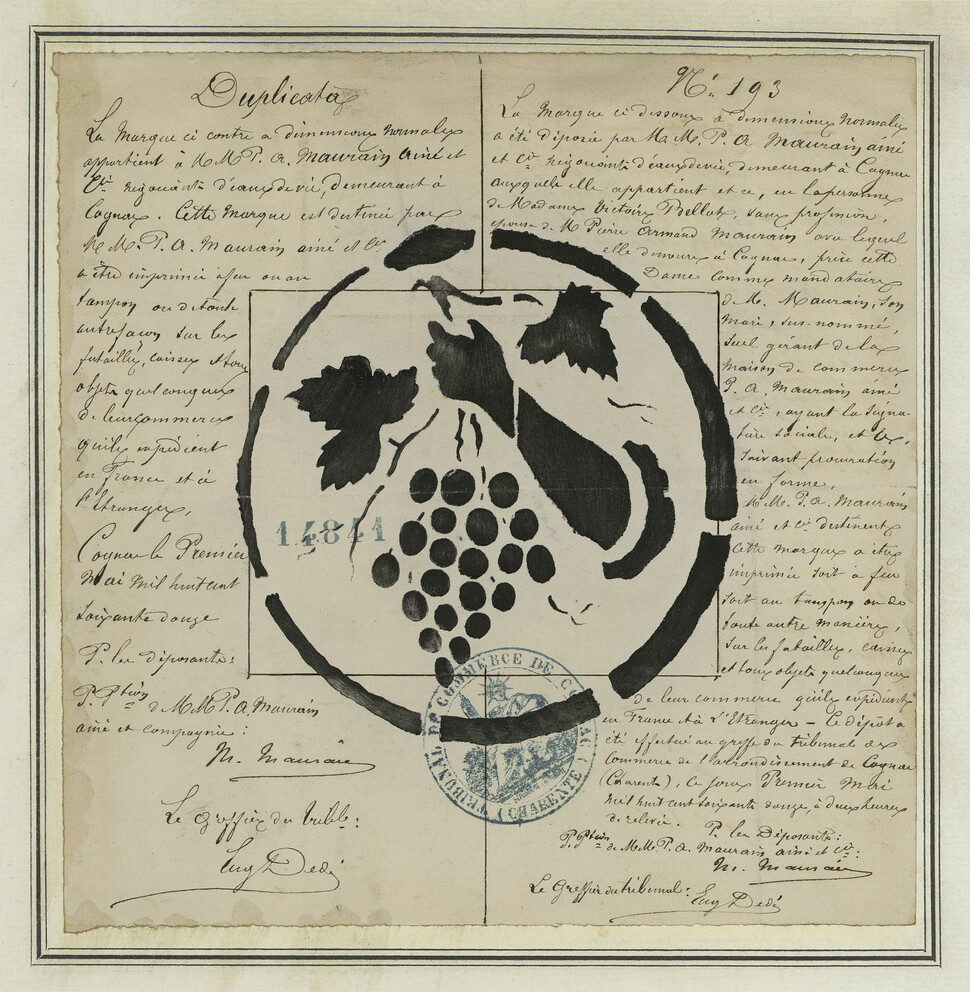 Duplicata
La Marque ci contre a dimensions normales
appartient à M.M. P. A. Maurain Ainé et
Cie négociants d'eaux de vie, demeurant à
Cognac. Cette Marque est destinée par
M.M. P. A. Maurain ainé et Cie
a être imprimée à feu ou au
tampon ou de toute
autre façon sur les
futailles, caisses et tous
objets quelconques
de leur commerce
qu'ils expédient
en France et à
l'Etranger,
Cognac le Premier
Mai mil huit cent
soixante douze
P. les déposants:
P. Ption de M.M. P. A. Maurain
ainé et compagnie:
M. Maurain
Le Greffier du Tribl:
Eug Dedé
Nº 193
La Marque ci dessous à dimensions normales
a été déposée par M.M. P. A Maurain ainé
et Cie négociants d'eaux de vie, demeurant à Cognac
auxquels elle appartient et ce, en la personne
de Madame Victoire Pellot, sans profession,
épouse de M. Pierre Armand Maurain avec lequel
elle demeure à Cognac, prise cette
Dame comme mandataire
de M. Maurain, son
Mari, sus-nommé,
seul gérant de la
Maison de commerce
P. A. Maurain ainé
et Cie, ayant la signa-
ture sociale, et ce,
suivant procuration
en forme,
M.M. P. A. Maurain
ainé et Cie destinent
Cette marque à être
imprimée soit à feu
soit au tampon ou de
toute autre manière,
sur les futailles, caisses
et tous objets quelconques
de leur commerce qu'ils expédient
en France et à l'Etranger – Ce dépôt a
été effectué au greffe du tribunal de
Commerce de l'arrondissement de Cognac
(Charente), ce jour Premier Mai
mil huit cent soixante douze, à deux heures
de relevée.
P. les Déposants:
P. Ption de M.M. P. A. Maurain ainé et Cie:
M. Maurain
Le Greffier du tribunal:
Eug Dedé
14841
TRIBUNAL DE COMMERCE DE COGNAC
(CHARENTE)